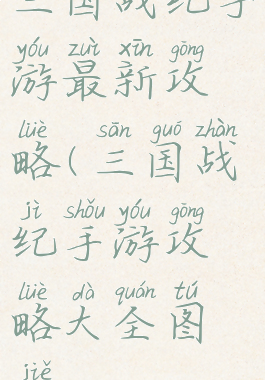 三国战纪手
yóu zuì xīn gōng
游最新攻
lüè sān guó zhàn
略(三国战
jì shǒu yóu gōng
纪手游攻
lüè dà quán tú
略大全图
jiě